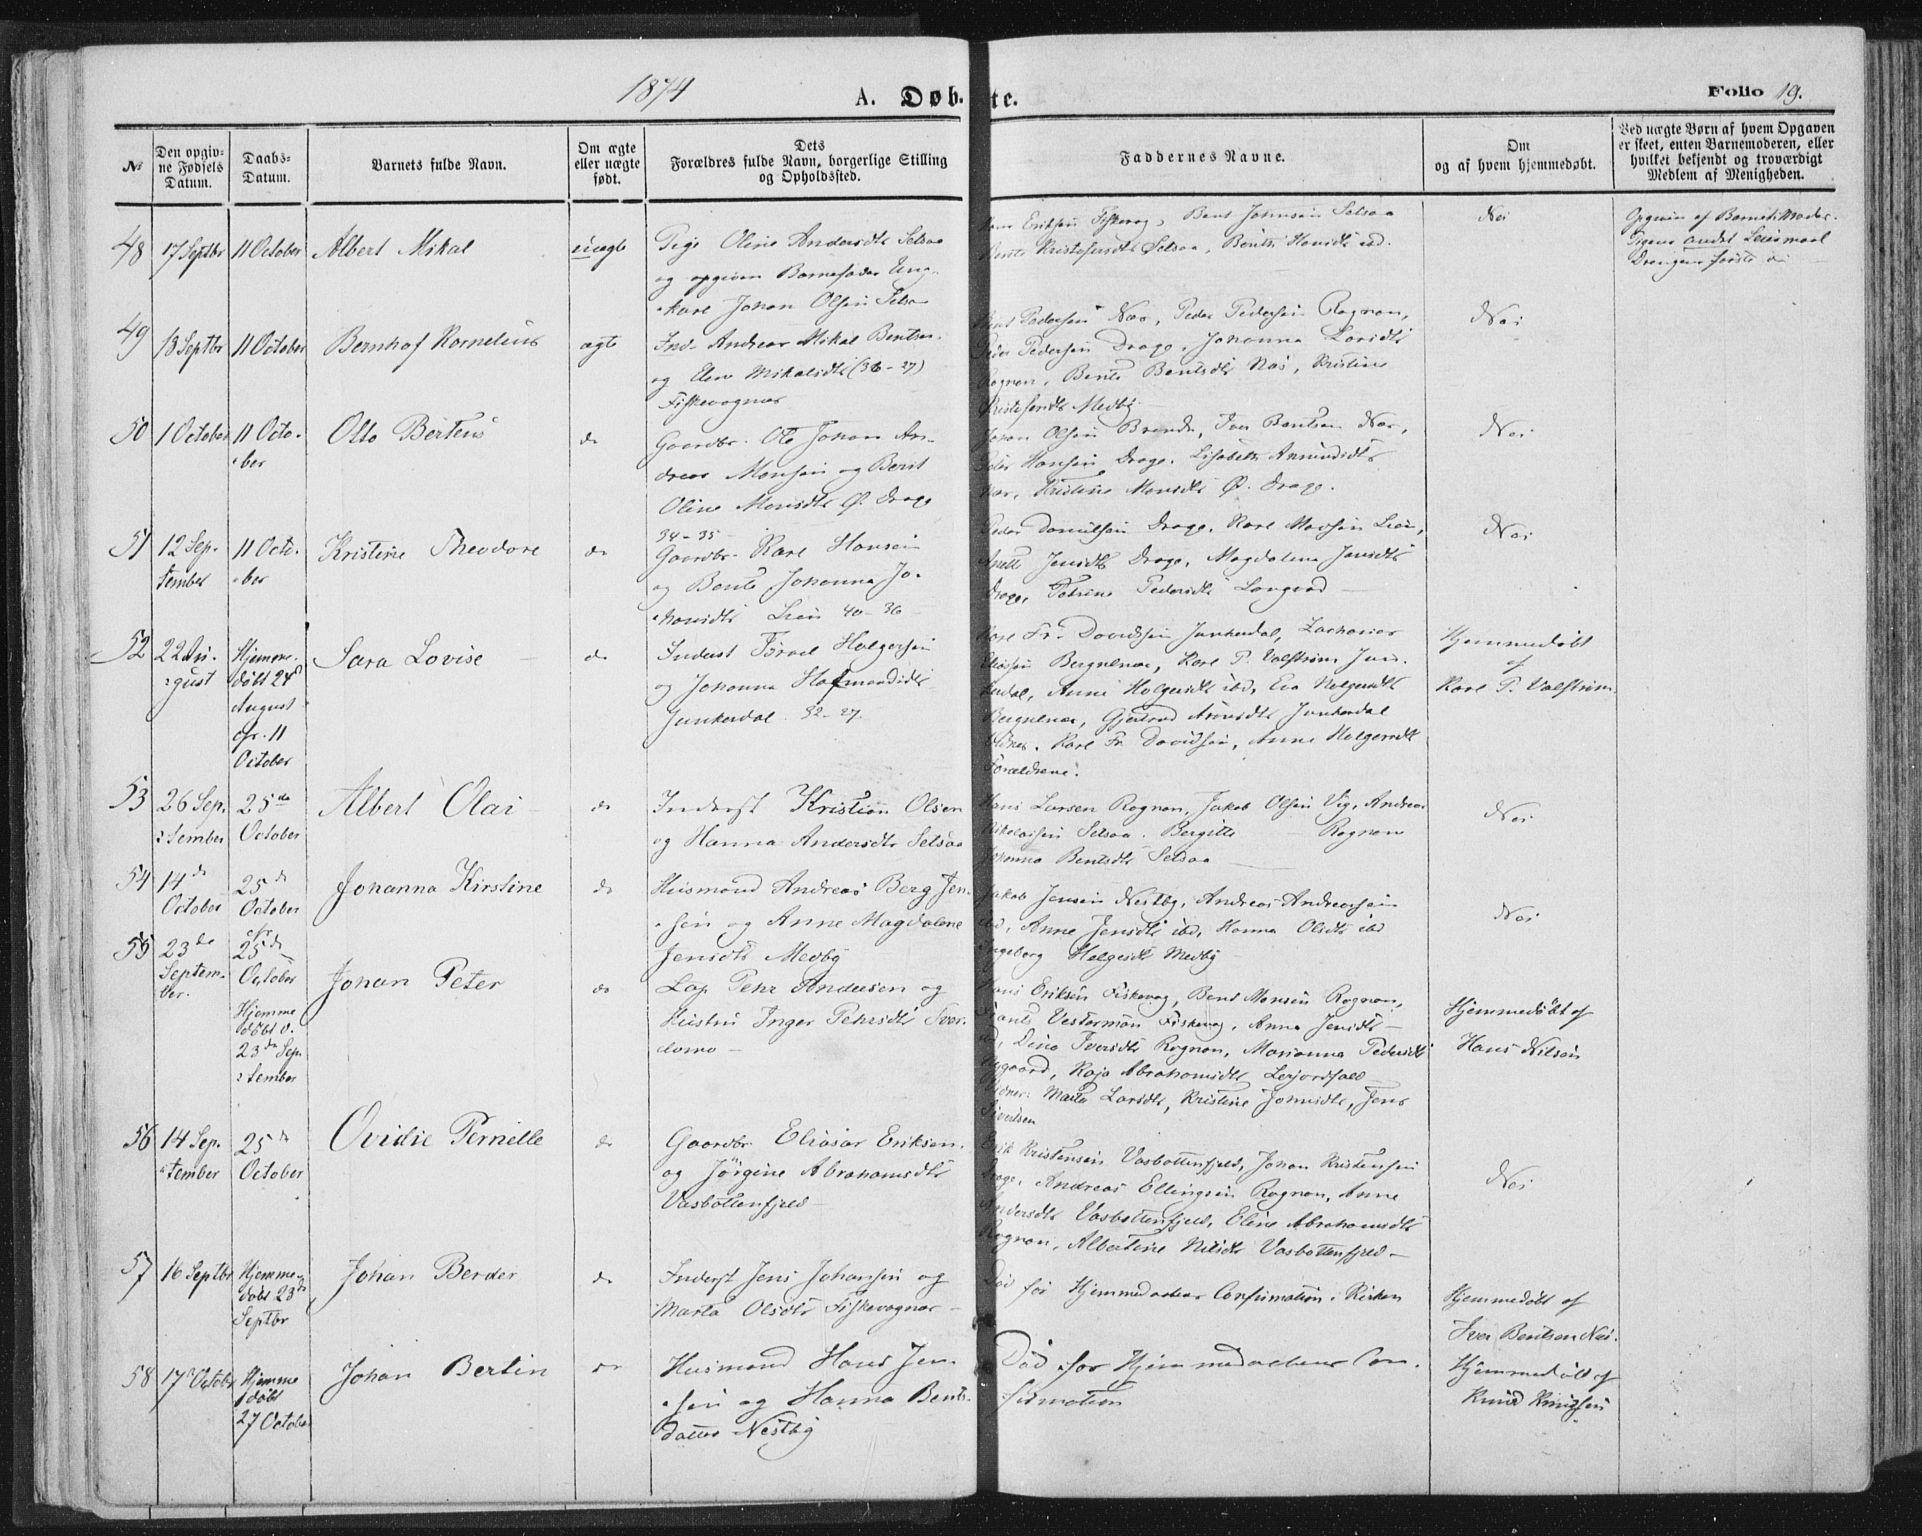 1874
A. Døbte.
Folio 19.
№
Den opgivne Fødsels Datum.
Daabs-Datum.
Barnets fulde Navn.
Om ægte eller uægte født.
Dets Forældres fulde Navn, borgerlige Stilling og Opholdssted.
Faddernes Navne.
Om og af hvem hjemmedøbt.
Ved uægte Børn af hvem Opgaven er skeet, enten Barnemoderen, eller hvilket bekjendt og troværdigt Medlem af Menigheden.
48
17 Septbr
11 October
Albert Mikal
uægte
Pige Oline Andersdtr Selsaa
og opgiven Barnefader Ung-
karl Johan Olsen Selsa
Eriksen Fiskevog, Bent Johnsen Selsaa
Bente Kristofersdtr Selsaa,
Nei
Opgiven af Barnets Moder.
Pigens andet Leiermaal
Drengens første
49
13 Septbr
11 October
Bernhof Kornelius
ægte
Ind. Andreas Mikal Bentsen
og Elen Mikalsdtr (36-27)
Fiskevognes
Pedersen Næs, Peder Pedersen Rognan,
Peder Pedersen Drage, Johanna Larsdtr
Rognan, Bente Bentsdtr Næs, Kristine
Kristofersdtr Medby
Nei
50
1 October
11 Octo-
ber
Otto Berteus
do
Gaardbr. Ole Johan An-
dreas Monsen og Berit
Oline Monsdtr Ø. Drage
34-35
Johan Olsen Brænde, Iver Bentsen Næs,
Peder Hansen Drage, Lisabeth Amundsdtr
Næs, Kristine Monsdtr Ø. Drage.
Nei
51
12 Sep-
tember
11 Octo-
ber
Kristine Theodore
do
Gaardbr. Karl Hansen
og Bente Johanna Jo-
hansdtr Lien 40-36
Peder Danielsen Drage, Karl Larsen Lien,
Anette Jensdtr Drage, Magdalena Jensdtr
Drage, Petrine Pedersdtr Langvad
Nei
52
22 Au-
gust
Hjemme-
døbt 24d
August
cfr. 11
October
Sara Lovise
do
Inderst Israel Holgersen
og Johanna Hofmandsdtr
Junkerdal. 32-27.
Karl Fr. Davidsen Junkerdal, Zacharias
Eliasen Bergulnæs, Karl P. Valstrøm Jun-
kerdal, Anne Holgersdtr ibd, Eva Holgersdtr
Bergulnæs, Gjertrud Aronsdtr Junkerdal
Vidner. Karl Fr. Davidsen, Anne Holgersdtr
Forældrene.
Hjemmedøbt
af
Karl P. Valstrøm.
53
26 Sep-
tember
25de
October
Albert Olai
do
Inderst Kristian Olsen
og Hanna Andersdtr Selsaa
Hans Larsen Rognan, Jakob Olsen Vig, Andreas
Nikolaisen Selsaa. Bergitte — Rognan
Johanna Bentsdtr Selsaa
Nei
54
14de
October
25de
October
Johanna Kirstine
do
Husmand Andreas Berg Jen-
sen og Anne Magdalene
Jensdtr Medby
Jakob Jensen Nestby, Andreas Andreasen
ibd, Anne Jensdtr ibd, Hanna Olsdtr ibd
Ingeborg Holgersdtr Medby
Nei
55
23de
Septem-
ber.
cfr.
25de
October
Hjemme
døbt d.
23de Sep-
tember
Johan Peter
do
Lap Pehr Andersen og
Hustru Inger Pehrsdtr Sver-
domo
Hans Eriksen Fiskevog, Bent Monsen Rognan,
Frants Vestermon Fiskevog, Anna Jensdtr
ibd, Lina Iversdtr Rognan, Marianna Pedersdtr
Nygaard, Kaja Abrahamsdtr Lerjordfald
Vidner: Marta Larsdtr, Kristine Johnsdtr, Jens
Sivertsen
Hjemmedøbt af
Hans Nilsen
56
14 Sep-
tember
25de
October
Ovidie Pernille
do
Gaardbr. Eliasar Eriksen
og Jørgine Abrahamsdtr
Vasbottenfjeld
Erik Kristensen Vasbottenfjeld, Johan Kristensen
Drage, Andreas Ellingsen Rognan, Anne
Andersdtr Vasbottenfjeld, Eline Abrahamsdtr
Rognan, Albertine Nilsdtr Vasbottenfjeld
Nei
57
16 Septbr
Hjemme-
døbt 23de
Septbr
Johan Berder
do
Inderst Jens Johansen og
Marta Olsdtr Fiskevognes
Død før Hjemmedaabens Confirmation i Kirken
Hjemmedøbt af
Iver Bentsen Næs.
58
17de October
Hjemme
døbt
27 October
Johan Bertin
do
Husmand Hans Jen-
sen og Hanna Bents-
datter Nestby
Død før Hjemmedaabens Con-
firmation
Hjemmedøbt af
Knud Knudsen